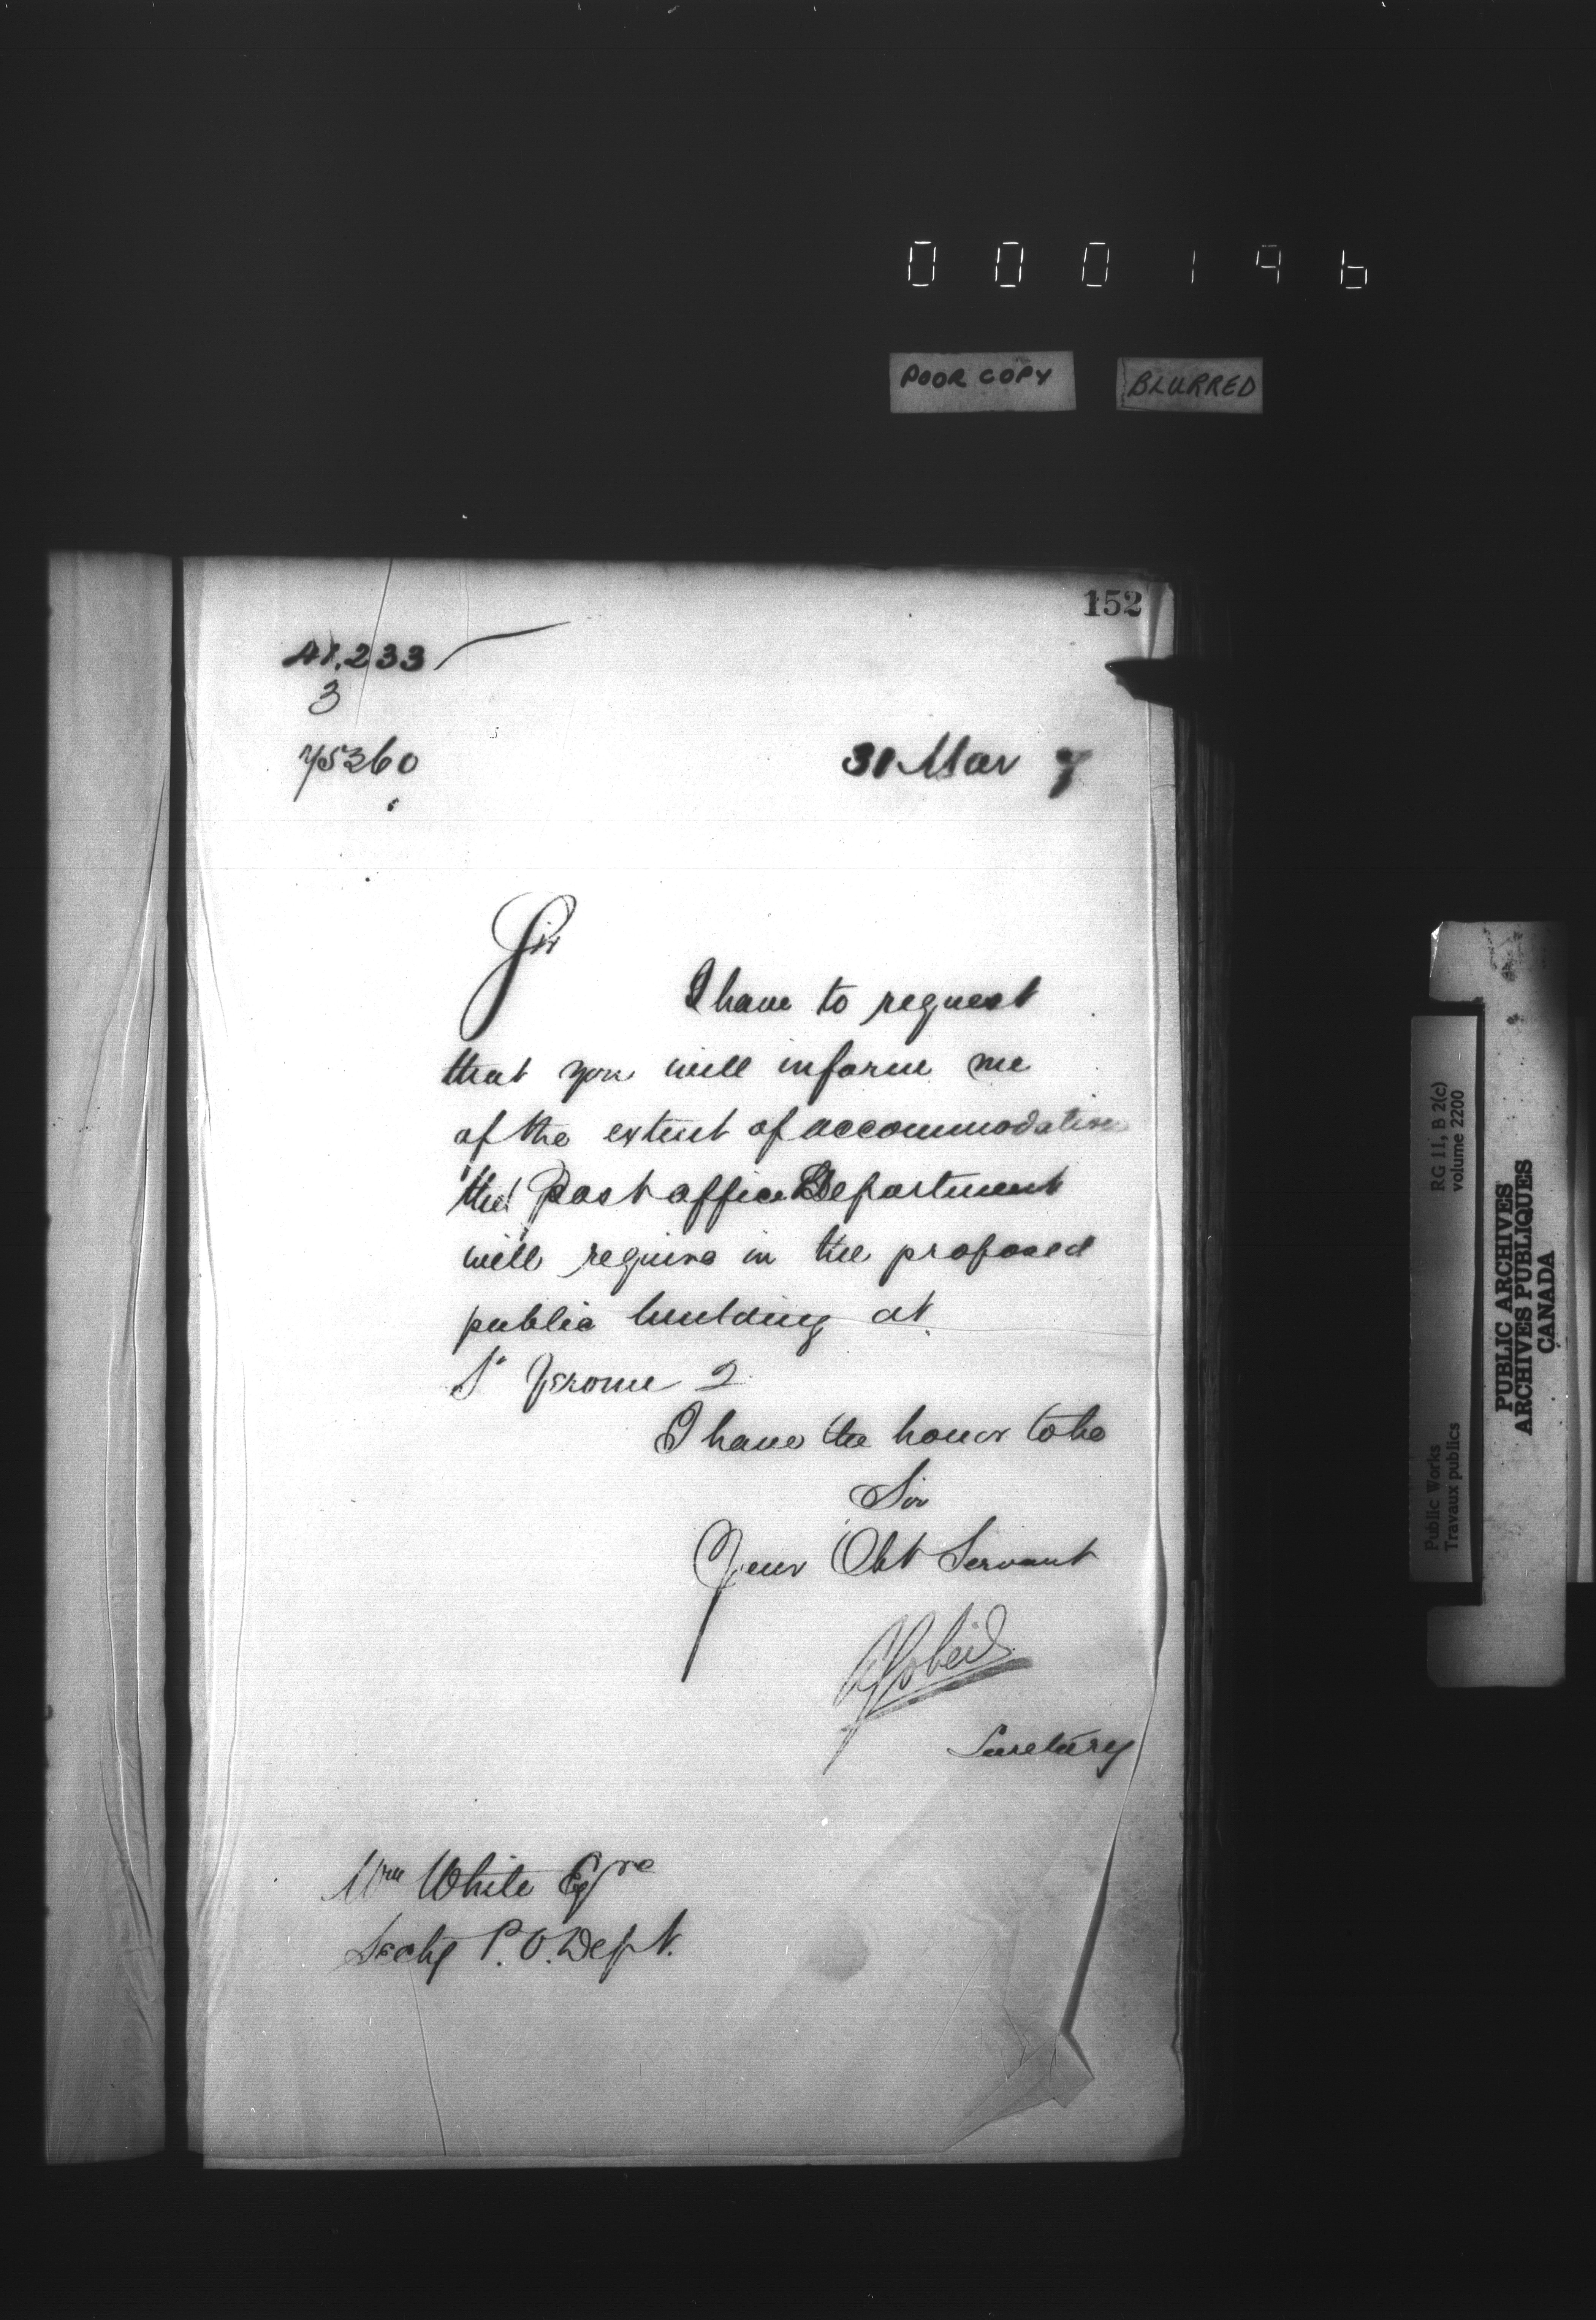 000196
POOR COPY
BLURRED
152
41.233
3
75360
31 Mar 7
Sir
I have to request
that you will inform me
of the extent of accommodation
the Post office Department
will require in the proposed
public building at
St Jerome Q
I have the honor to be
Sir
Your Obt Servant
A Gobeil
Secretary
Wm White Esqre
Secty P. O. Dept.
Public Works
Travaux publics
RG 11, B 2(c)
volume 2200
PUBLIC ARCHIVES
ARCHIVES PUBLIQUES
CANADA